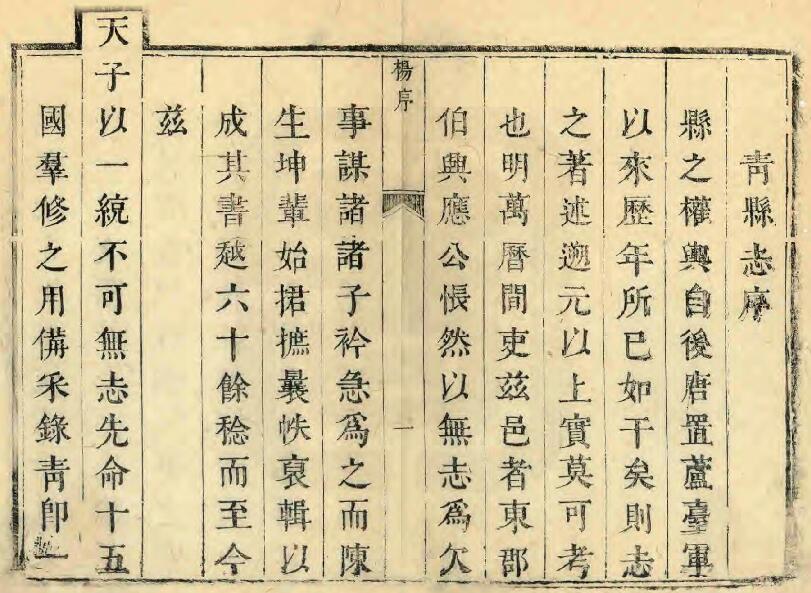 青縣志序
縣之權輿自後唐置蘆臺軍
以來歷年所已如干矣則志
之著述遡元以上實莫可考
也明萬曆間吏茲邑者東郡
伯興應公悵然以無志爲欠
楊序
一
事謀諸諸子衿急爲之而陳
生坤輩始捃摭曩帙裒輯以
成其書越六十餘稔而至今
茲
天子以一統不可無志先命十五
國羣修之用備釆錄青卽一